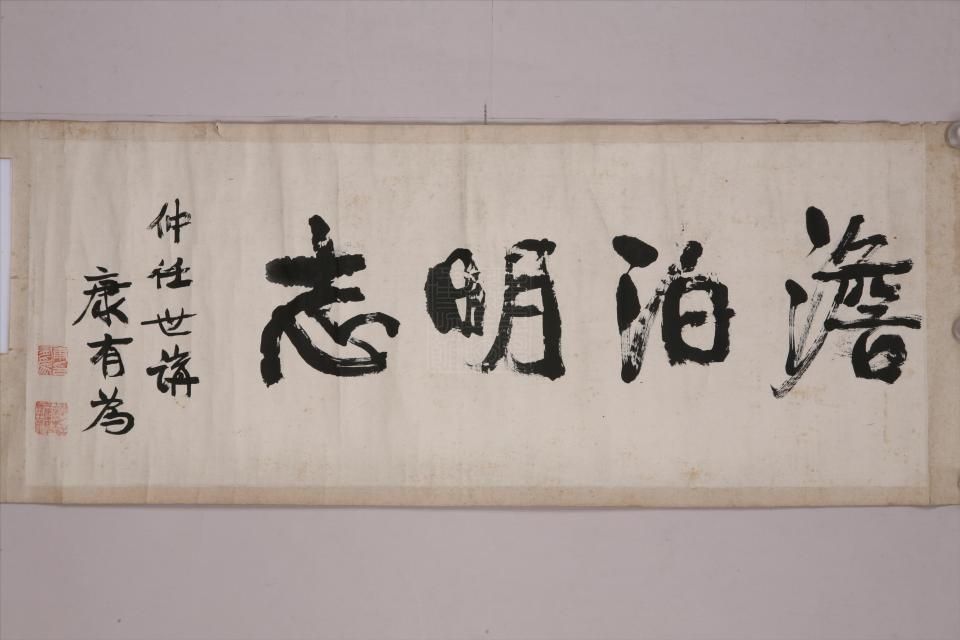 澹泊明志
仲任世講
康有為